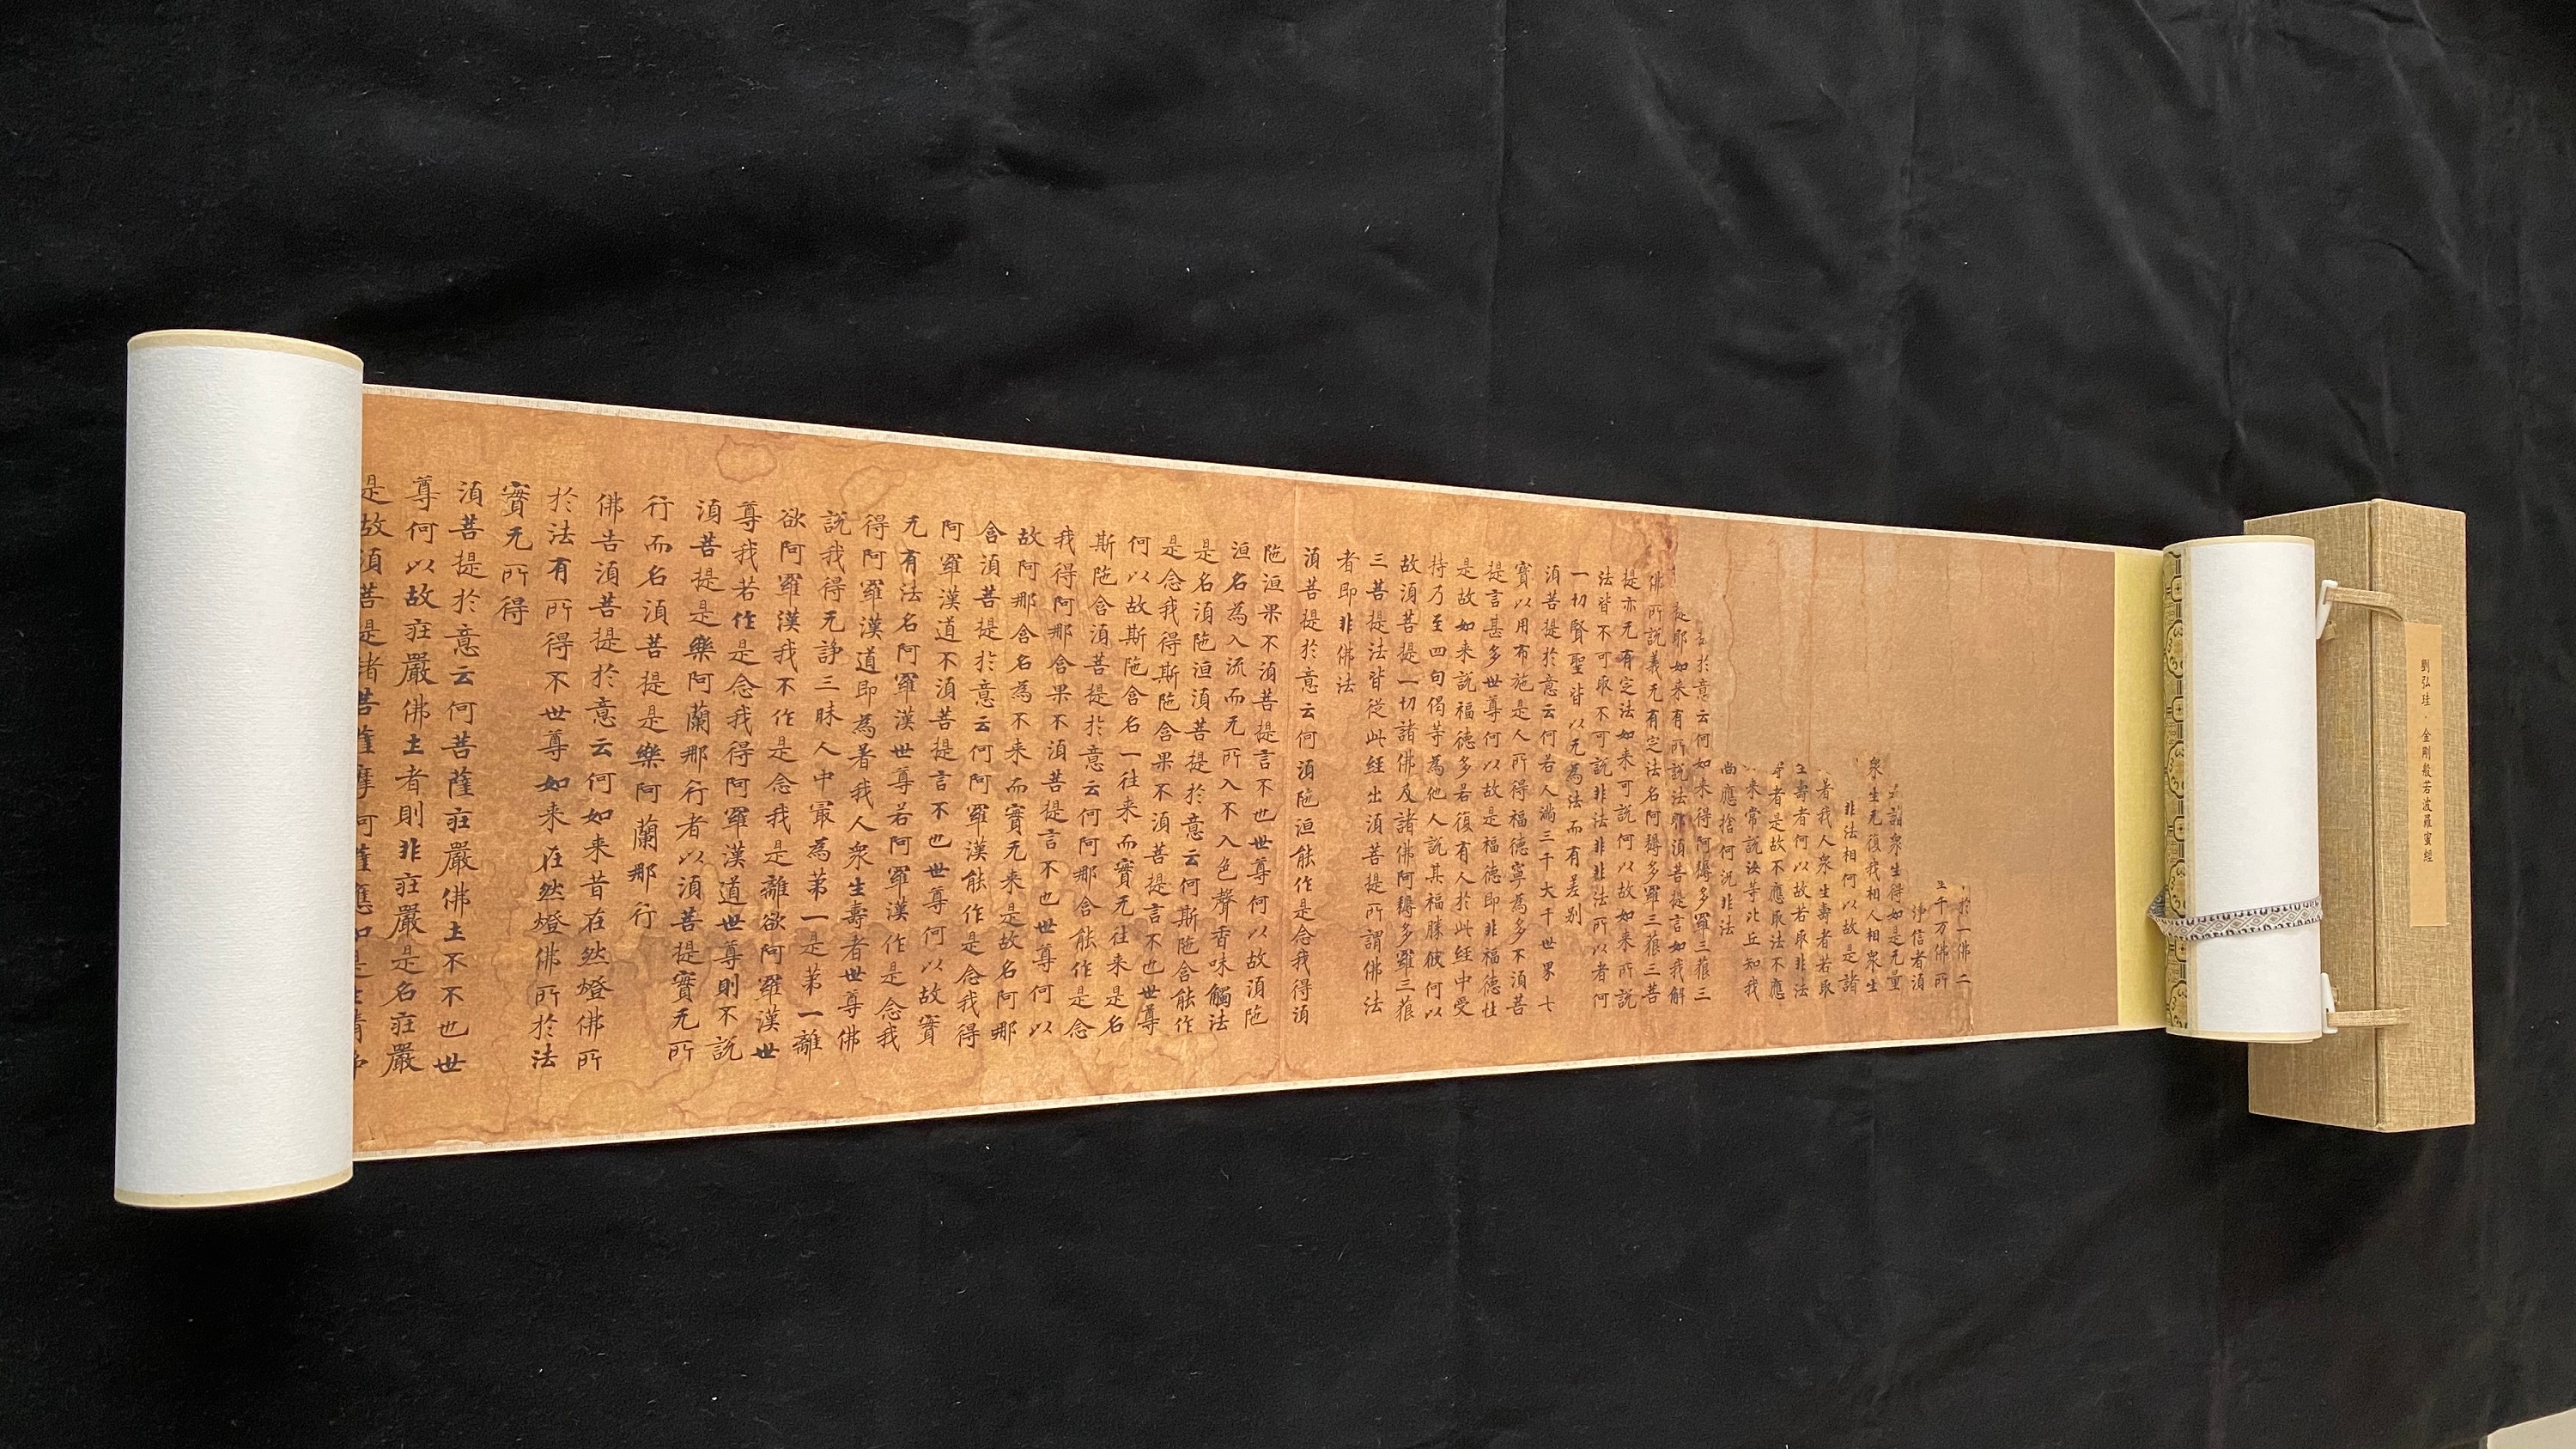 劉弘珪·金剛般若波羅蜜經
於一佛二
千万佛所
淨信者須
諸衆生得如是无量
衆生无復我相人相衆生
非法相何以故是諸
著我人衆生壽者若取
壽者何以故若取非法
者是故不應取法不應
来常說汝等比丘知我
尚應捨何況非法
於意云何如来得阿耨多羅三藐三
提耶如来有所說法耶須菩提言如我解
佛所說義无有定法名阿耨多羅三藐三菩
提亦无有定法如来可說何以故如来所說
法皆不可取不可說非法非非法所以者何
一切賢聖皆以无為法而有差別
須菩提於意云何若人滿三千大千世界七
寶以用布施是人所得福德寧為多不須菩
提言甚多世尊何以故是福德即非福德性
是故如来說福德多若復有人於此経中受
持乃至四句偈等為他人說其福勝彼何以
故須菩提一切諸佛及諸佛阿耨多羅三藐
三菩提法皆從此経出須菩提所謂佛法
者即非佛法
須菩提於意云何須陁洹能作是念我得須
陁洹果不須菩提言不也世尊何以故須陁
洹名為入流而无所入不入色聲香味觸法
是名須陁洹須菩提於意云何斯陁含能作
是念我得斯陁含果不須菩提言不也世尊
何以故斯陁含名一往来而實无往来是名
斯陁含須菩提於意云何阿那含能作是念
我得阿那含果不須菩提言不也世尊何以
故阿那含名為不来而實无来是故名阿那
含須菩提於意云何阿羅漢能作是念我得
阿羅漢道不須菩提言不也世尊何以故實
无有法名阿羅漢世尊若阿羅漢作是念我
得阿羅漢道即為著我人衆生壽者世尊佛
說我得无諍三昧人中冣為苐一是苐一離
欲阿羅漢我不作是念我是離欲阿羅漢世
尊我若作是念我得阿羅漢道世尊則不說
須菩提是樂阿蘭那行者以須菩提實无所
行而名須菩提是樂阿蘭那行
佛告須菩提於意云何如来昔在然燈佛所
於法有所得不世尊如来在然燈佛所於法
實无所得
須菩提於意云何菩薩莊嚴佛土不不也世
尊何以故莊嚴佛土者則非莊嚴是名莊嚴
是故須菩提諸菩薩摩訶薩應如是生清淨